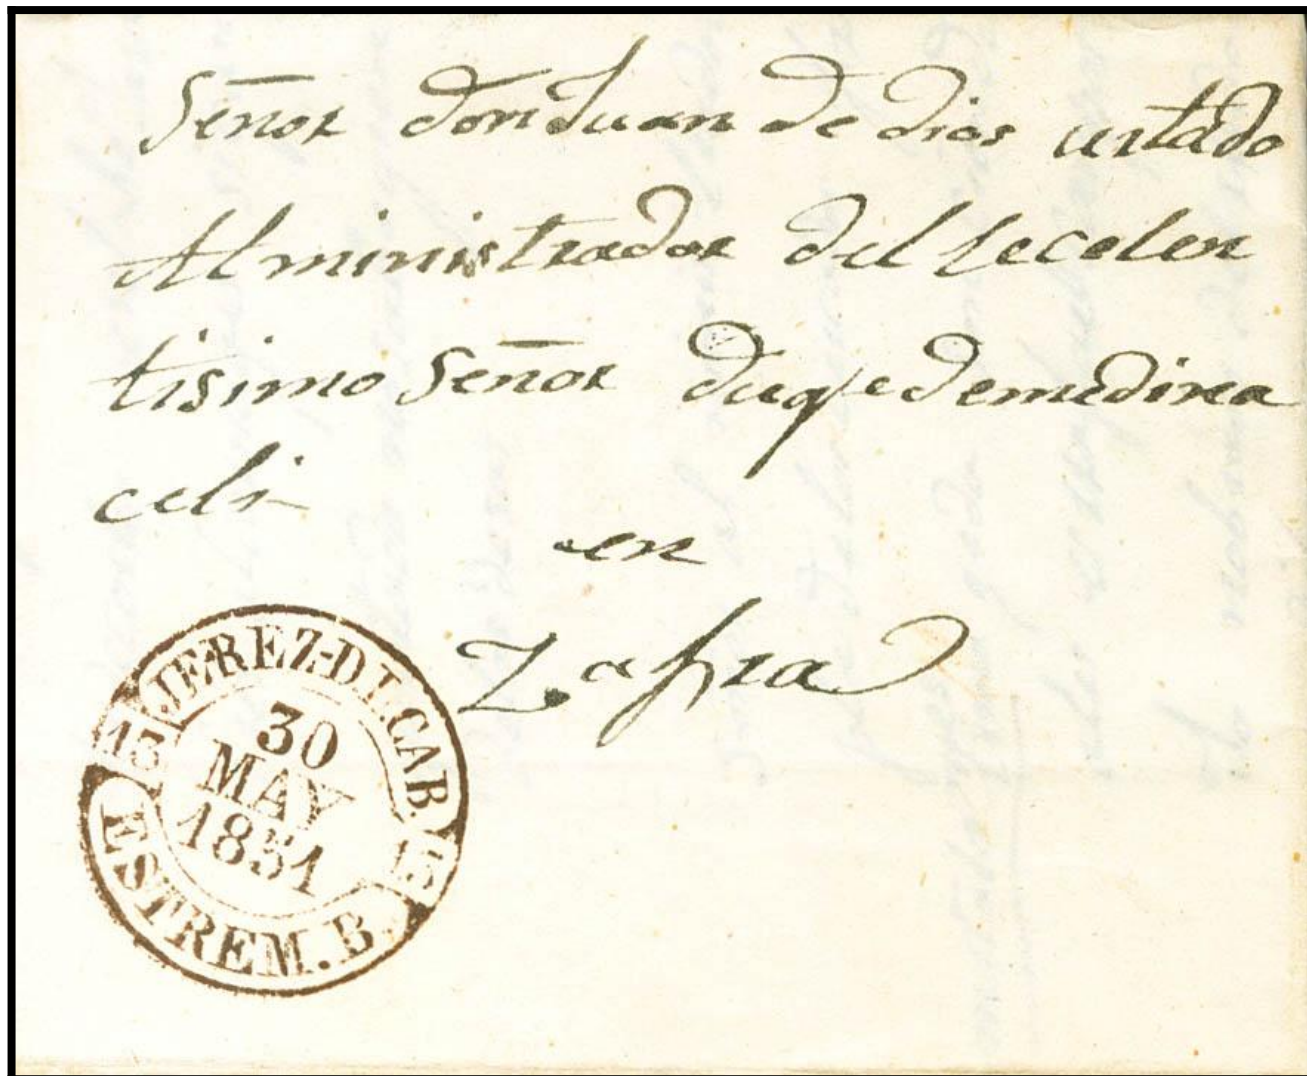 Señor don Juan de dios urtado
Alministrador del Secelen
tisimo Señor duqe de medina
celi
en
Zafra
JEREZ-D.L.CAB.
13 13
30
MAY
1851
ESTREM.B.